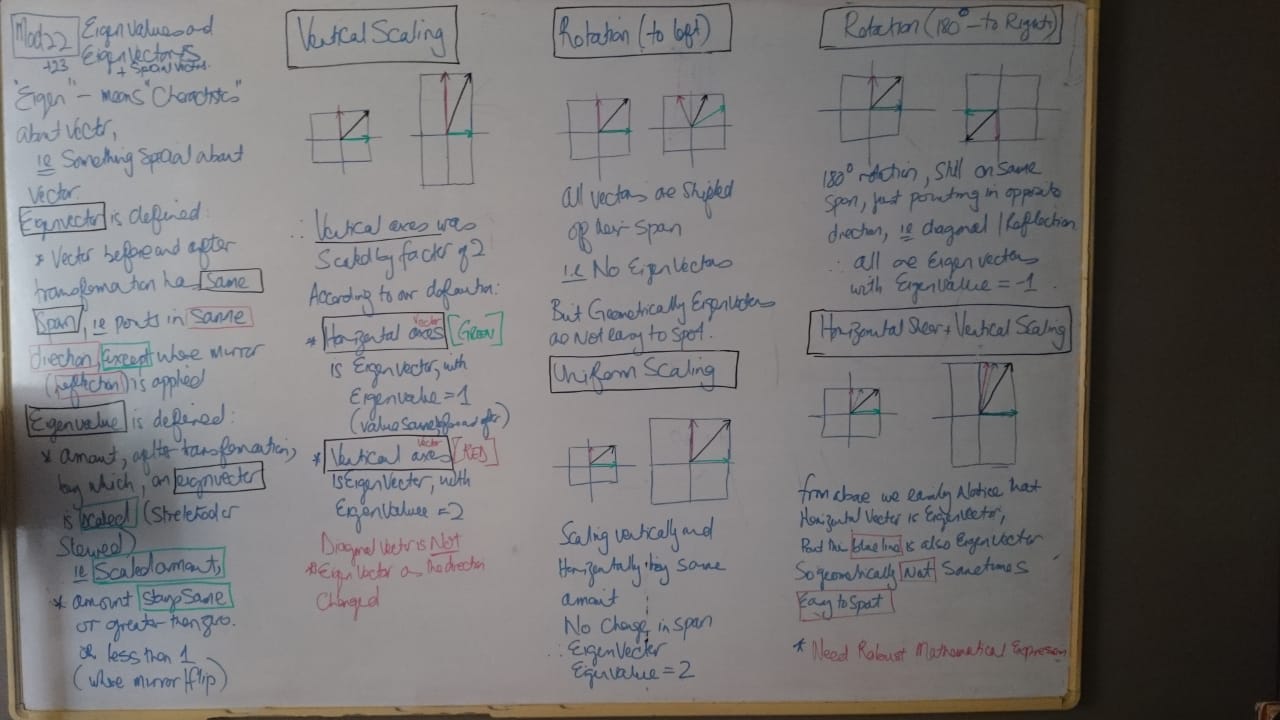 Mod 22 Eigen Values and
+23 Eigen Vectors
+ Special Vectors
"Eigen" - means "Charactistics"
about Vector,
ie Something Special about
Vector.
Eigenvector is defined:
* Vector before and after
transformation has Same
Span, ie points in Same
direction, Except where mirror
(reflection) is applied
Eigenvalue is defined:
* amount, after transformation,
by which, an eigenvector
is scaled (Stretched or
Skewed)
ie Scaled amount,
* amount stays Same
or greater than zero.
or less than 1
(where mirror/flip)
Vertical Scaling
∴ Vertical axes was
Scaled by factor of 2
According to our defination:
* Horizontal axes Vector [GREEN]
is Eigenvector, with
Eigenvalue = 1
(value same before and after)
* Vertical axes Vector [RED]
is Eigenvector, with
Eigenvalue = 2
Diagonal Vector is Not
* Eigen Vector as the direction
Changed
Rotation (to left)
All vectors are Shifted
off their Span
i.e No Eigen Vectors
But Geometrically Eigenvectors
are Not easy to Spot!
Uniform Scaling
Scaling vertically and
Horizontally by same
amount
No Change in Span
∴ Eigen Vector
Eigenvalue = 2
Rotation (180° - to Right)
180° rotation, Still on Same
Span, just pointing in opposite
direction, ie diagonal/Reflection
∴ all are Eigen Vectors
with Eigenvalue = -1.
Horizontal Shear + Vertical Scaling
from above we easily Notice that
Horizontal Vector is Eigenvector,
But the blue line is also Eigenvector
So geometrically Not Sometimes
Easy to Spot
* Need Robust Mathematical Expression